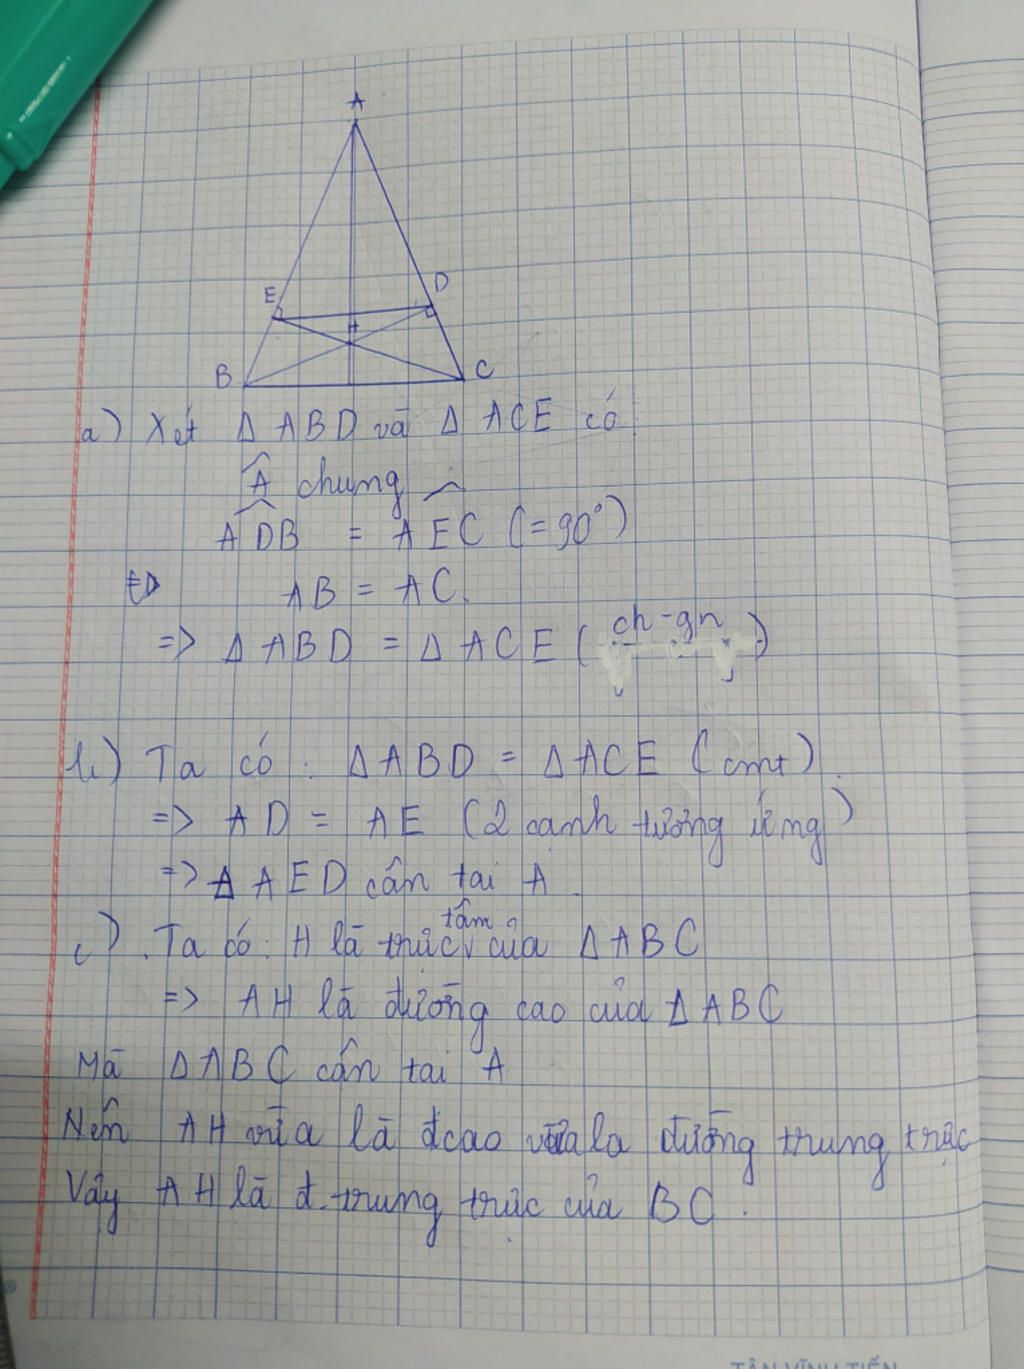 A
E
D
H
B
C
a) Xét Δ ABD và Δ ACE có
Â chung
ADB = AEC (= 90°)
AB = AC.
=> Δ ABD = Δ ACE ( ch - gn )
b) Ta có : Δ ABD = Δ ACE ( cmt )
=> AD = AE ( 2 cạnh tương ứng )
=> Δ AED cân tại A.
c) Ta có : H là trực tâm của Δ ABC
=> AH là đường cao của Δ ABC
Mà Δ ABC cân tại A
Nên AH vừa là đcao vừa la đường trung trực
Vậy AH là đ. trung trực của BC.
TÂN VĨNH TIẾN